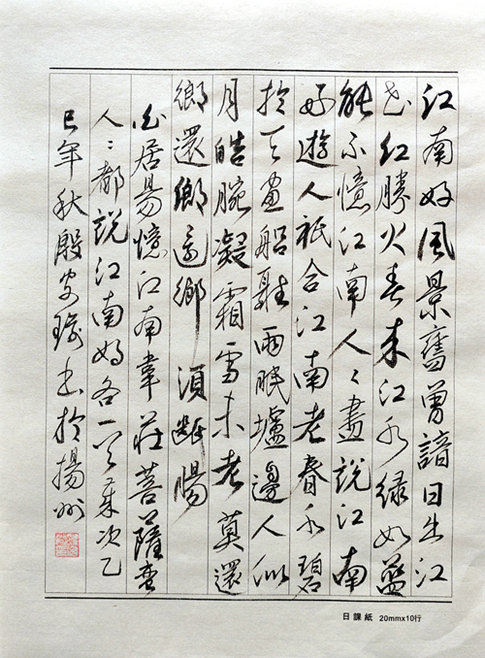 江南好風景舊曾諳日出江
花紅勝火春來江水綠如藍
能不憶江南人々盡說江南
好遊人祇合江南老春水碧
於天畫船聽雨眠壚邊人似
月皓腕凝霜雪未老莫還
鄉還鄉還鄉須斷腸
白居易憶江南韋莊菩薩蠻
人々都說江南好各一首歲次乙
巳年秋殷書於揚州
日課紙 20mm×10行